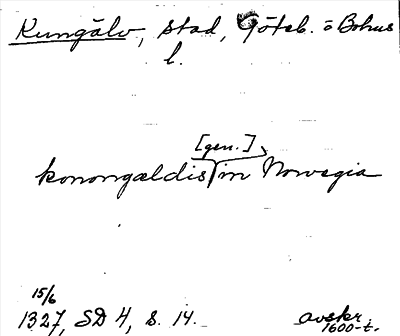 Kungälv, stad, Göteb. o Bohus
l.
[gen.]
konongældis in Norvegia
15/6
1327, SD 4, s. 14. avskr.
1600-t.